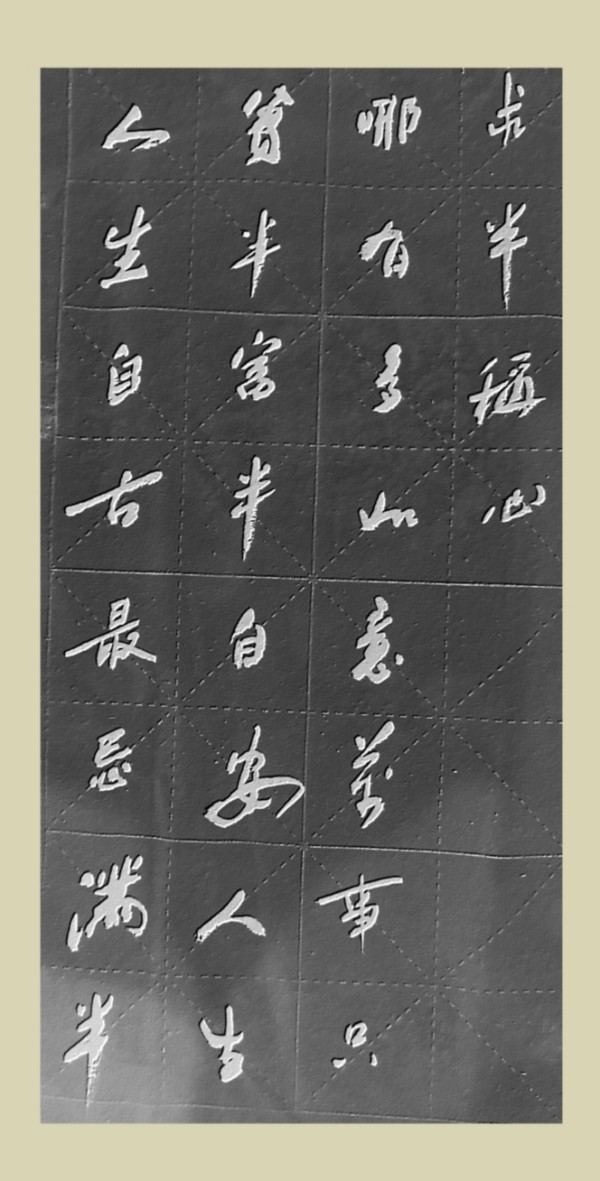 人生自古最忌滿半
貧半富半自安人生
哪有多如意萬事只
求半稱心